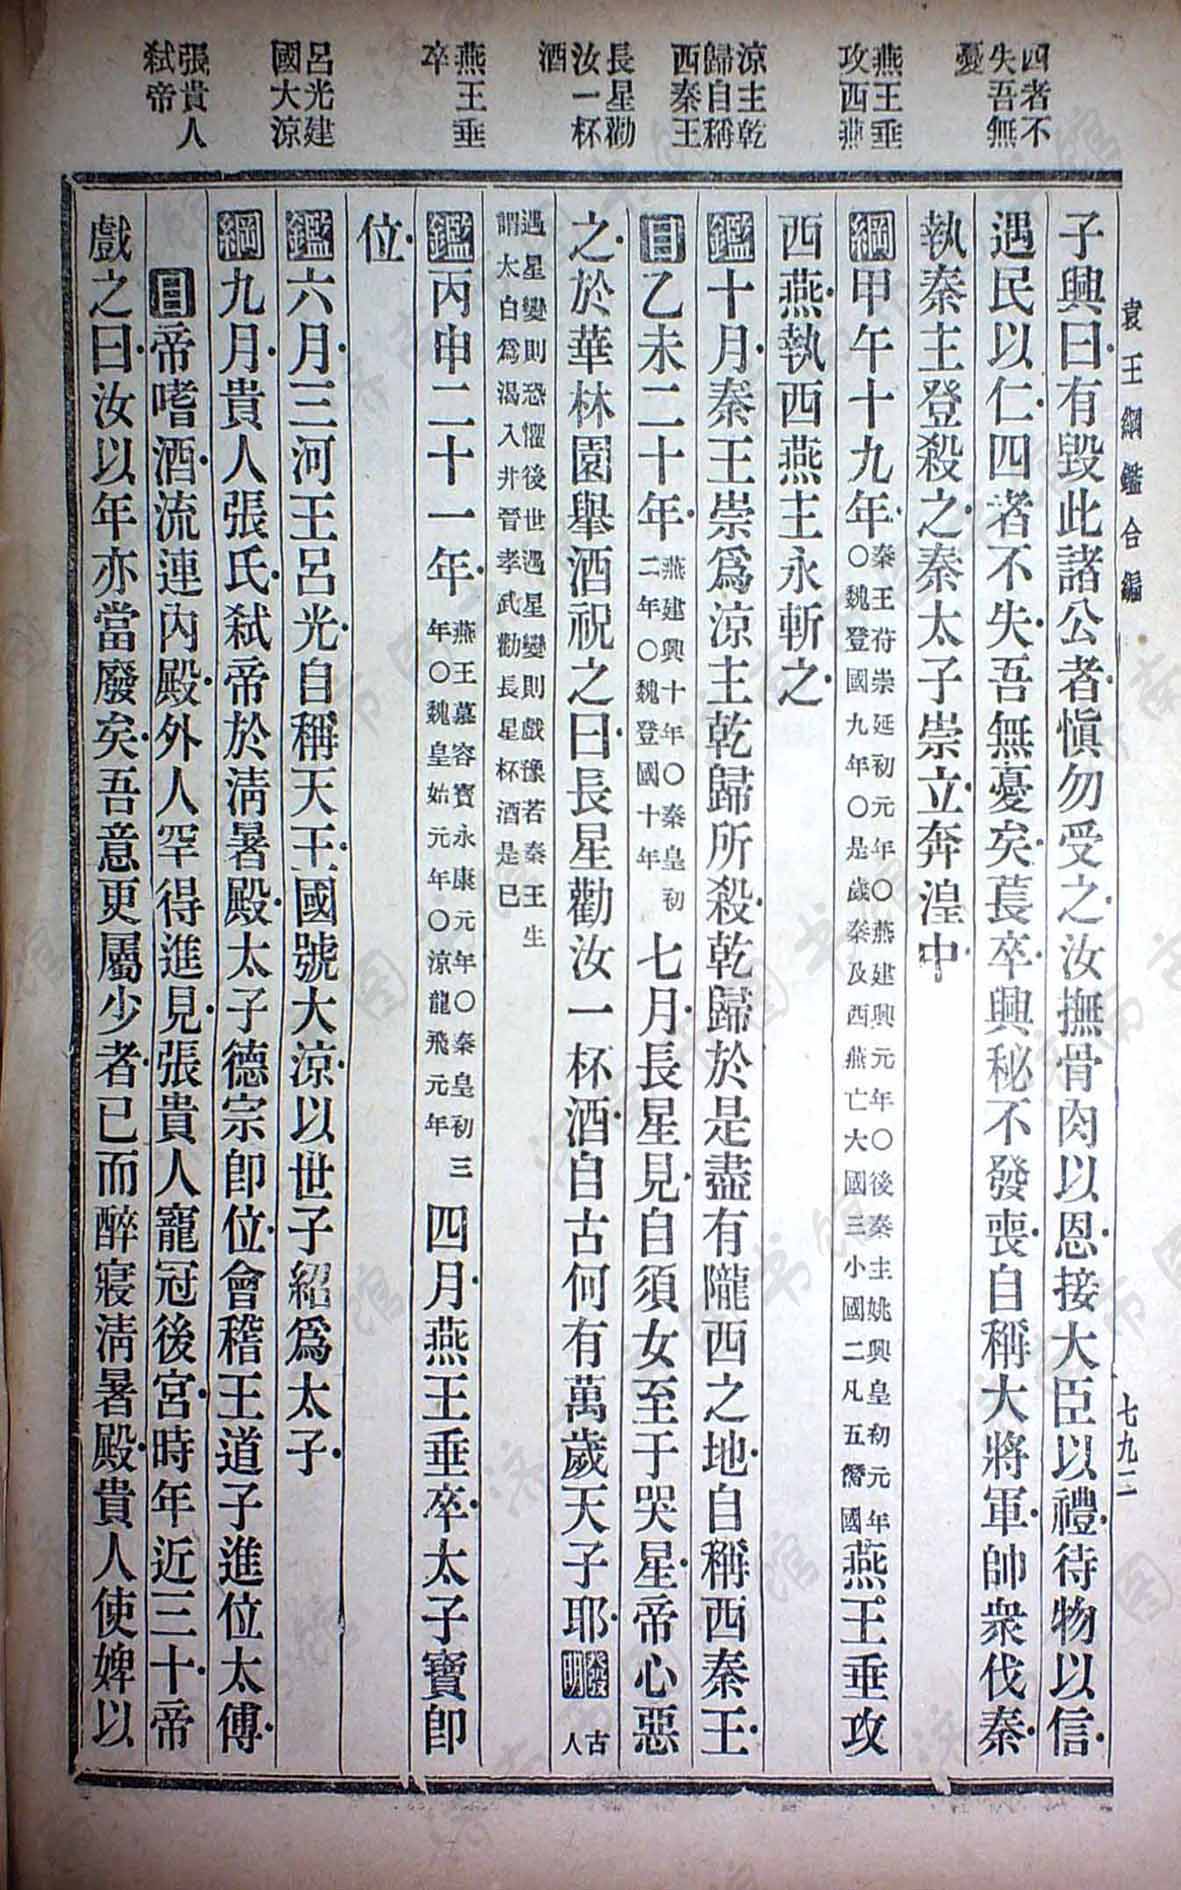 四者不
失吾無
憂
燕王垂
攻西燕
涼主乾
歸自稱
西秦王
長星勸
汝一杯
酒
燕王垂
卒
呂光建
國大涼
張貴人
弒帝
袁王綱鑑合編
七九二
子興曰有毀此諸公者愼勿受之汝撫骨肉以恩接大臣以禮待物以信
遇民以仁四者不失吾無憂矣萇卒興秘不發喪自稱大將軍帥衆伐秦
執秦主登殺之秦太子崇立奔湟中
綱甲午十九年秦王苻崇延初元年〇燕建興元年〇後秦主姚興皇初元年〇魏登國九年〇是歲秦及西燕亡大國三小國二凡五僭國燕王垂攻
西燕執西燕主永斬之
鑑十月秦王崇爲涼主乾歸所殺乾歸於是盡有隴西之地自稱西秦王
目乙未二十年燕建興十年〇秦皇初二年〇魏登國十年七月長星見自須女至于哭星帝心惡
之於華林園舉酒祝之曰長星勸汝一杯酒自古何有萬歲天子耶發明古人
遇星變則恐懼後世遇星變則戲豫若秦王生
謂太白爲渴入井晉孝武勸長星杯酒是已
鑑丙申二十一年燕王慕容寶永康元年〇秦皇初三年〇魏皇始元年〇涼龍飛元年四月燕王垂卒太子寶卽
位
鑑六月三河王呂光自稱天王國號大涼以世子紹爲太子
綱九月貴人張氏弒帝於淸暑殿太子德宗卽位會稽王道子進位太傅
目帝嗜酒流連內殿外人罕得進見張貴人寵冠後宮時年近三十帝
戲之曰汝以年亦當廢矣吾意更屬少者已而醉寢淸暑殿貴人使婢以